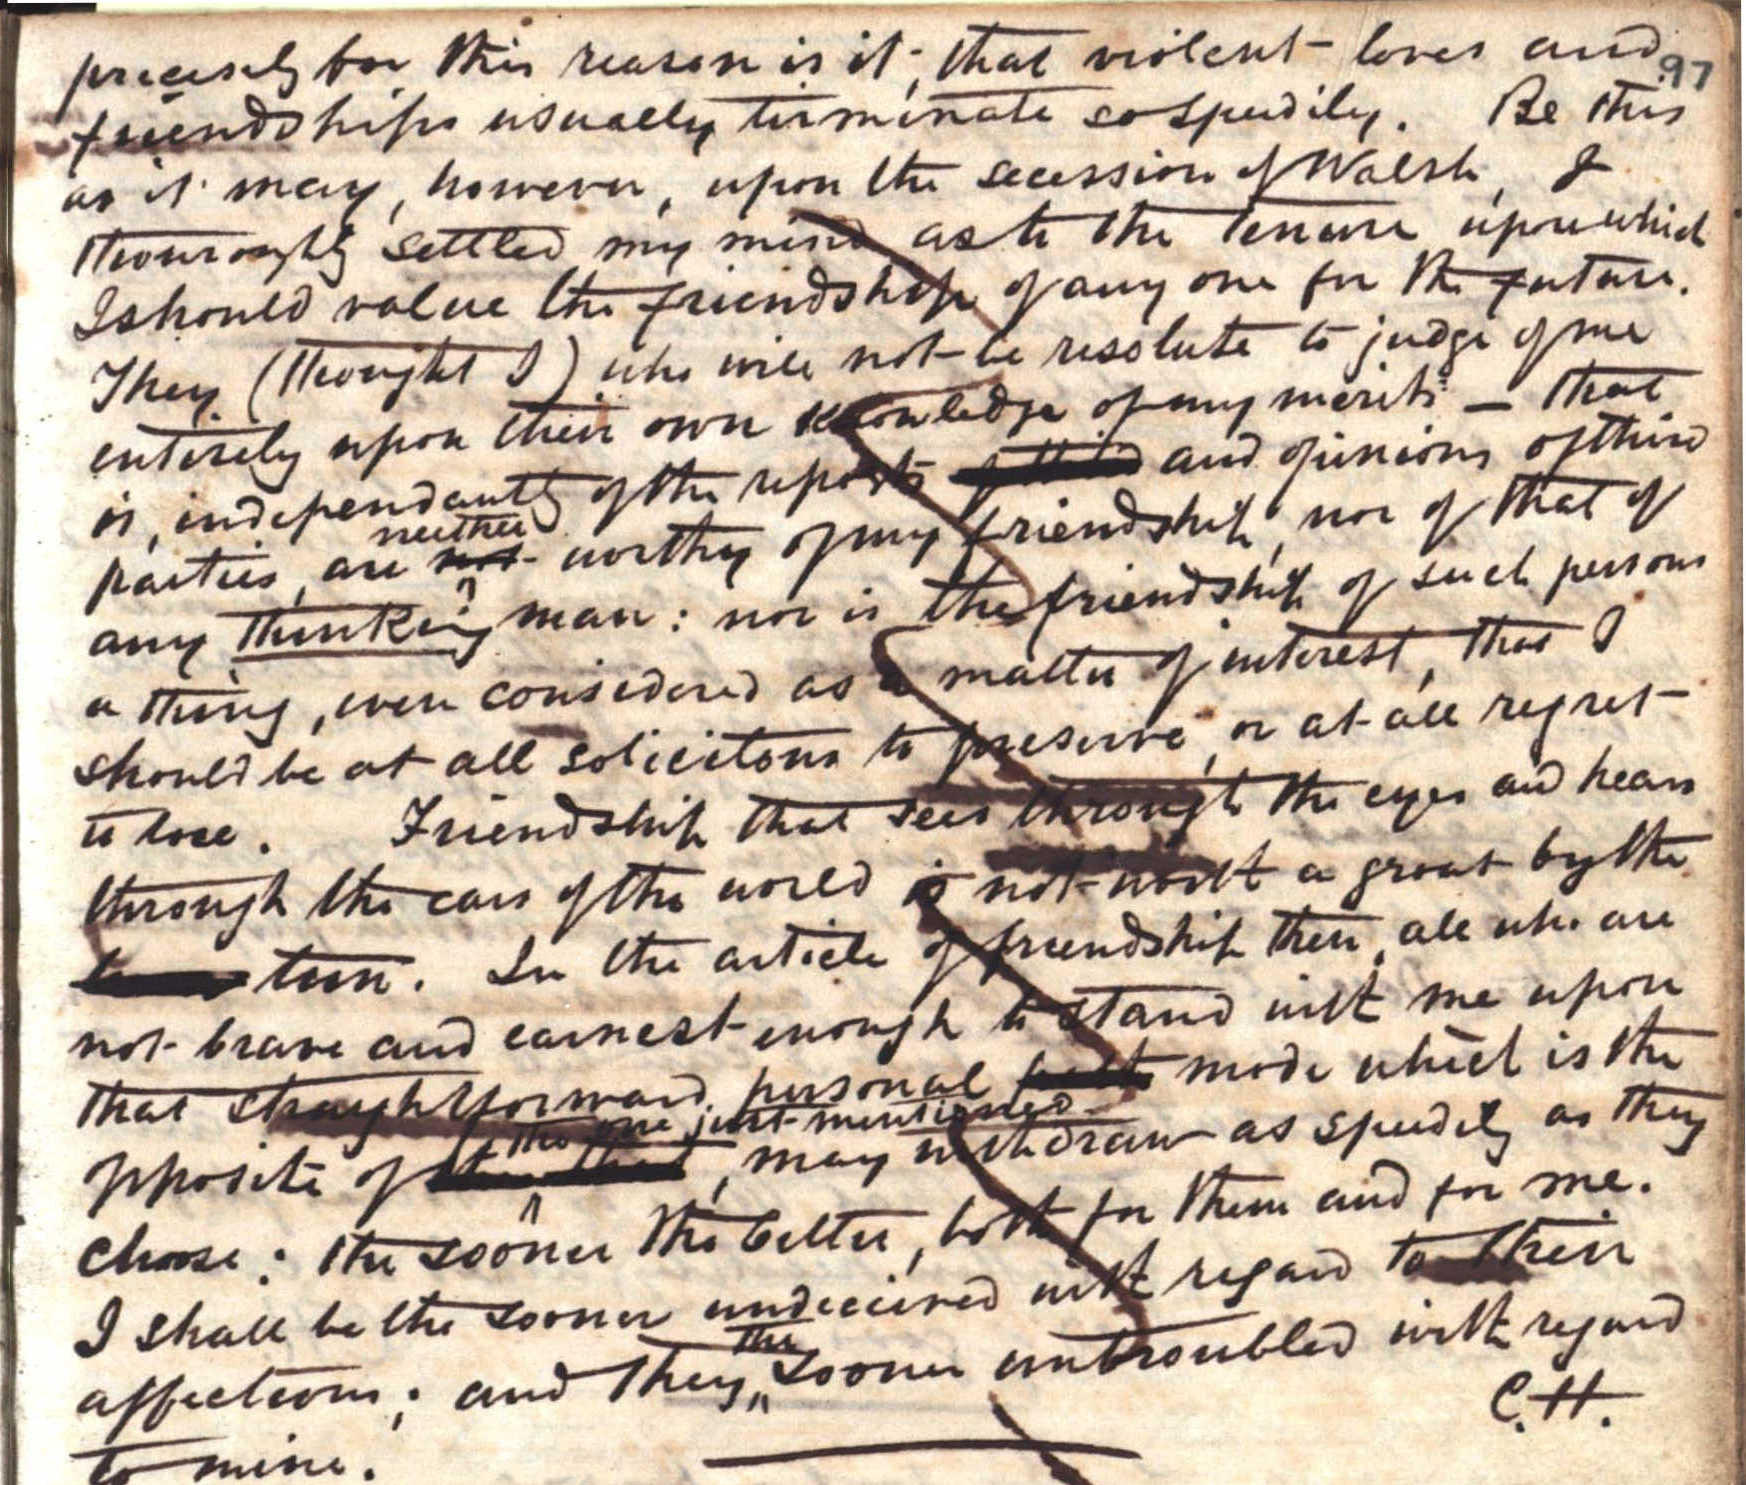 97
precisely for this reason is it, that violent loves and
friendships usually terminate so speedily. Be this
as it may, however, upon the secession of Walsh, I
thouroughly settled my mind as to the tenure upon which
I should value the friendship of any one for the future.
They (thought I) who will not be resolute to judge of me
entirely upon their own knowledge of my merits – that
is, independantly of the reports and opinions of third
neither
parties, are not worthy of my friendship, nor of that of
any thinking man: nor is the friendship of such persons
a thing, even considered as a matter of interest, that I
should be at all solicitous to preserve, or at all regret
to lose. Friendship that sees through the eyes and hears
through the ears of the world is not worth a groat by the
ton. In the article of friendship then, all who are
not brave and earnest enough to stand with me upon
that straightforward, personal mode which is the
the one just mentioned
opposite of , may withdraw as speedily as they
choose: the sooner the better, both for them and for me.
I shall be the sooner undeceived with regard to their
the
affections; and they sooner untroubled with regard
to mine.
C.H.